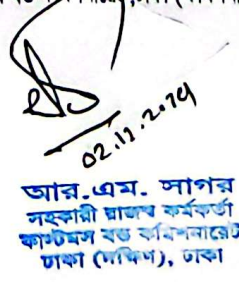 02.11.2014
আর.এম. সাগর
সহকারী রাজস্ব কর্মকর্তা
কাস্টমস বন্ড কমিশনারেট
ঢাকা (দক্ষিণ), ঢাকা